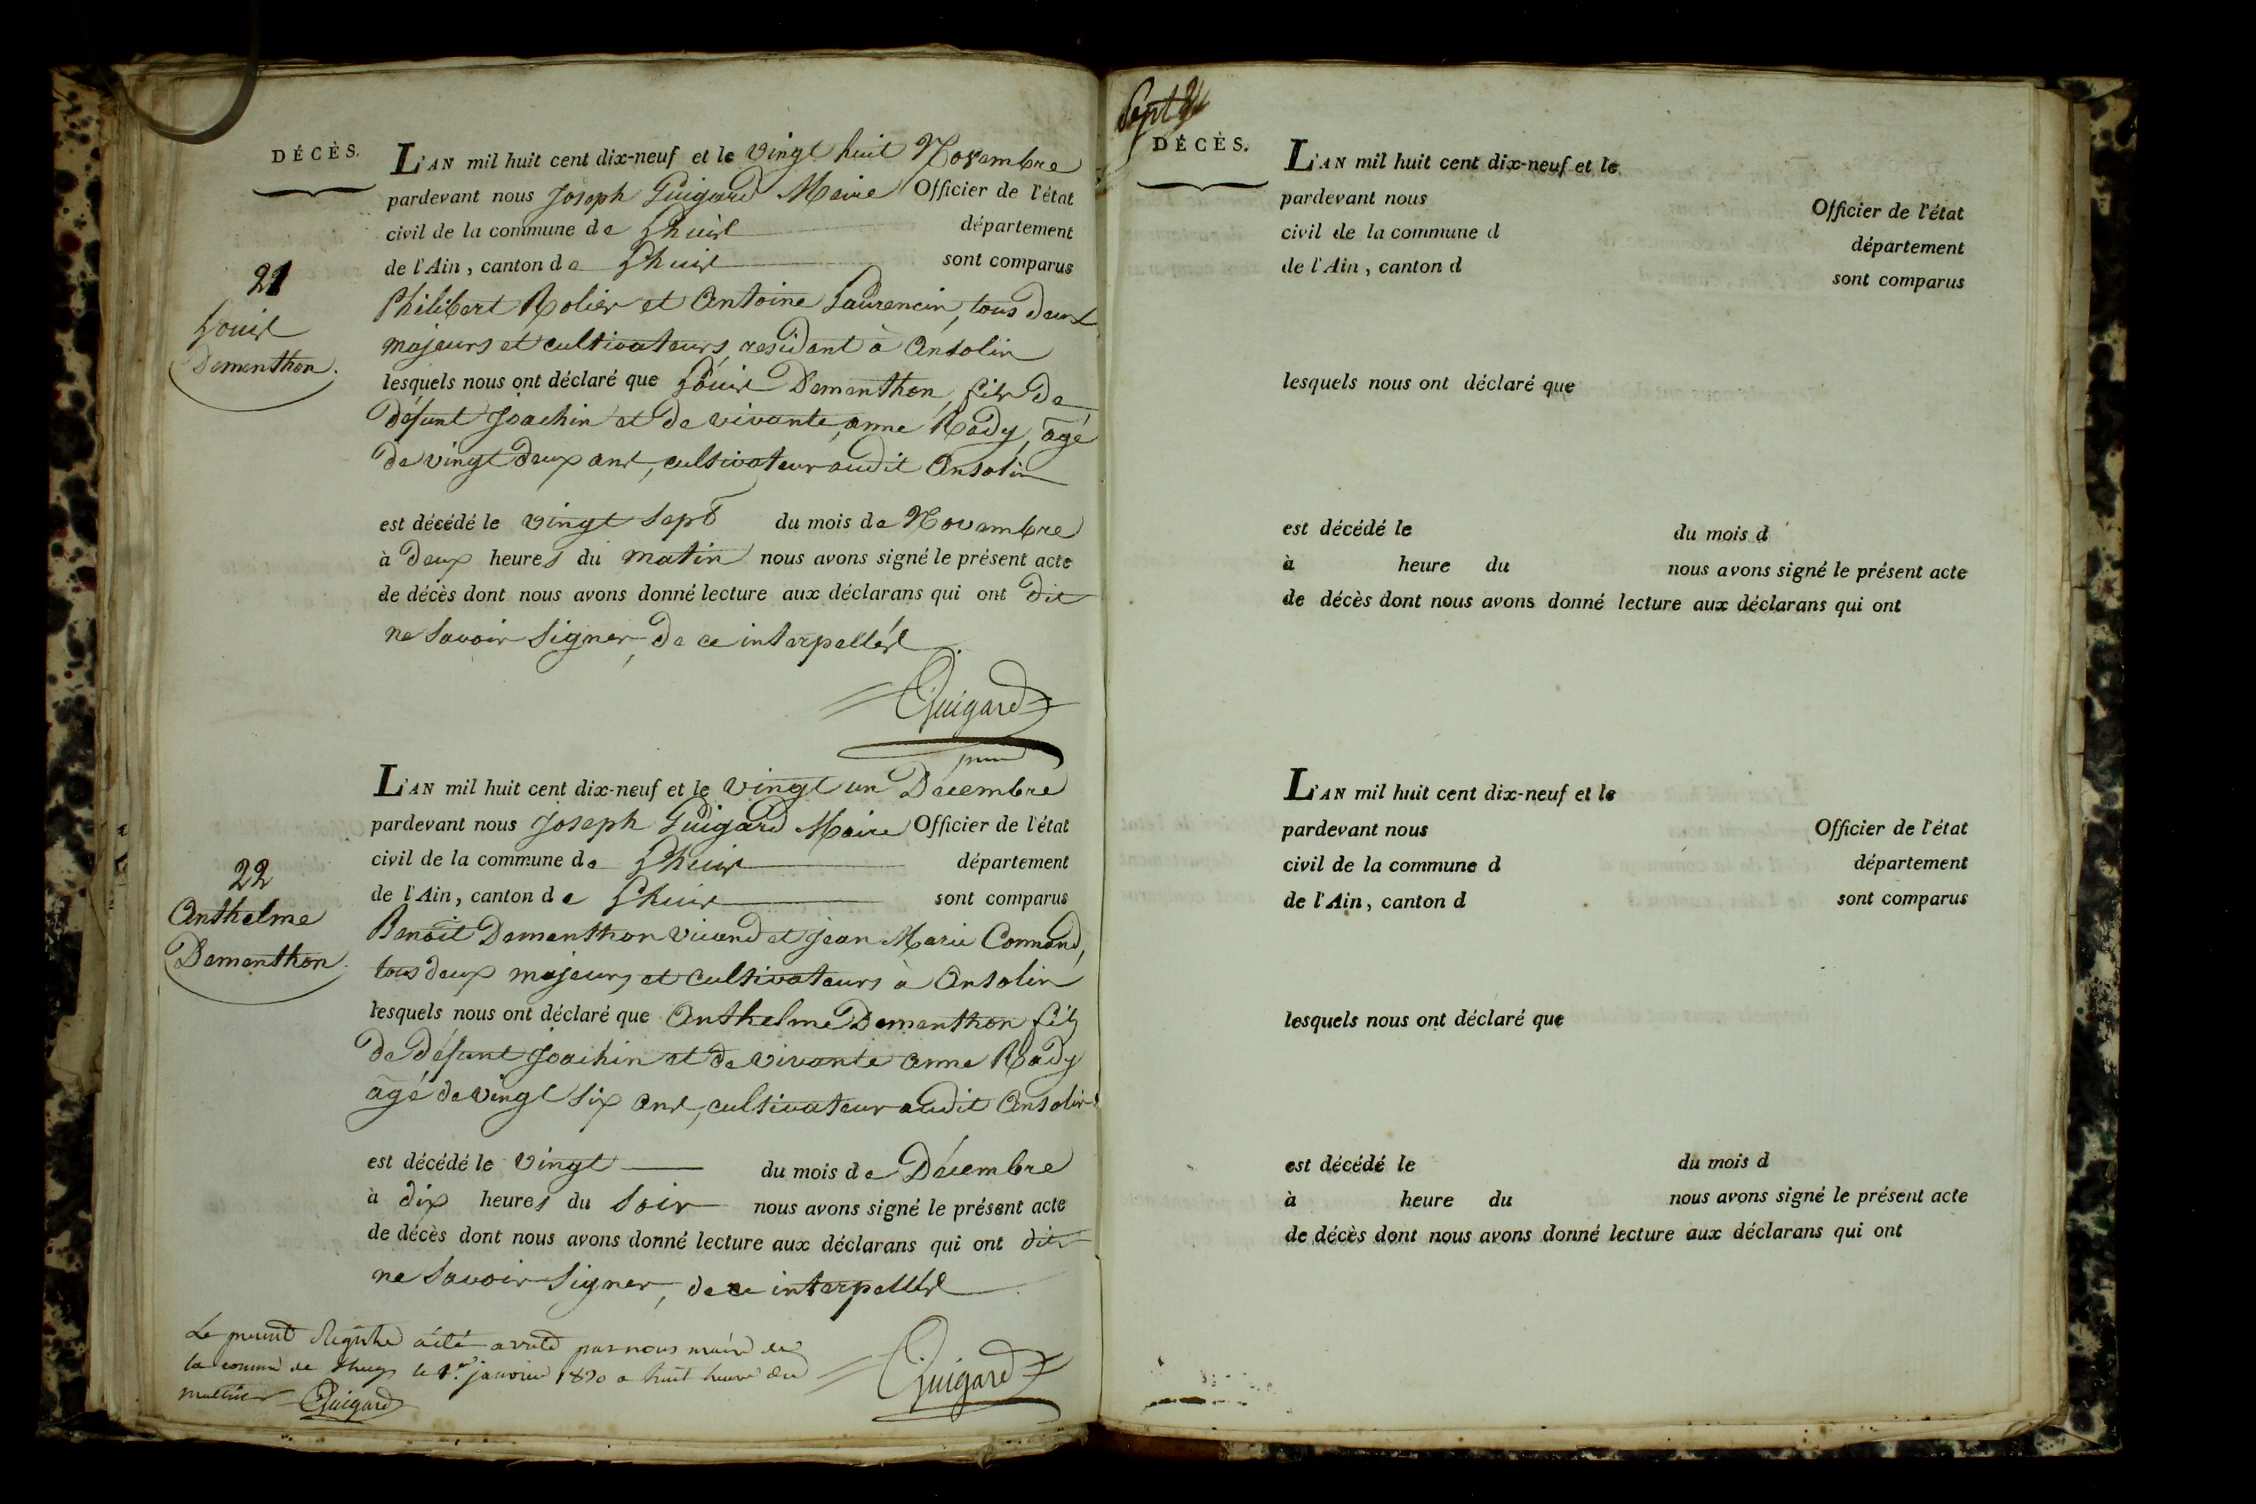 DÉCÈS.
21
Louis
Dementhon.
L'AN mil huit cent dix-neuf et le vingt huit Novembre
pardevant nous Joseph Guigard Maire Officier de l'état
civil de la commune de Lhuis département
de l'Ain, canton de Lhuis sont comparus
Philibert Rolier et Antoine Laurencin, tous deux
majeurs et cultivateurs, residant à Ansolin
lesquels nous ont déclaré que Louis Dementhon, fils de
défunt Joachin et de vivante anne Rady, agé
de vingt deux ans, cultivateur audit Ansolin
est décédé le vingt sept du mois de Novembre
à deux heures du matin nous avons signé le présent acte
de décès dont nous avons donné lecture aux déclarans qui ont dit
ne savoir signer, de ce interpellés.
Guigard
22
Anthelme
Dementhon.
L'AN mil huit cent dix-neuf et le vingt un Décembre
pardevant nous Joseph Guigard Maire Officier de l'état
civil de la commune de Lhuis département
de l'Ain, canton de Lhuis sont comparus
Benoit Dementhon Vivand et Jean Marie Connand,
tous deux majeurs et cultivateurs à Ansolin
lesquels nous ont déclaré que Anthelme Dementhon fils
de défunt Joachin et de vivante anne Rady
agé de vingt six ans, cultivateur audit Ansolin
est décédé le vingt du mois de Décembre
à dix heures du soir nous avons signé le présent acte
de décès dont nous avons donné lecture aux déclarans qui ont dit
ne savoir signer, de ce interpellés.
Guigard
Le présent Registre a été par nous maire de
la comme de Lhuys le 1er janvier 1820 a huit heure du
matin Guigard
DÉCÈS.
L'AN mil huit cent dix-neuf et le
pardevant nous Officier de l'état
civil de la commune d département
de l'Ain, canton d sont comparus
lesquels nous ont déclaré que
est décédé le du mois d
à heure du nous avons signé le présent acte
de décès dont nous avons donné lecture aux déclarans qui ont
L'AN mil huit cent dix-neuf et le
pardevant nous Officier de l'état
civil de la commune d département
de l'Ain, canton d sont comparus
lesquels nous ont déclaré que
est décédé le du mois d
à heure du nous avons signé le présent acte
de décès dont nous avons donné lecture aux déclarans qui ont